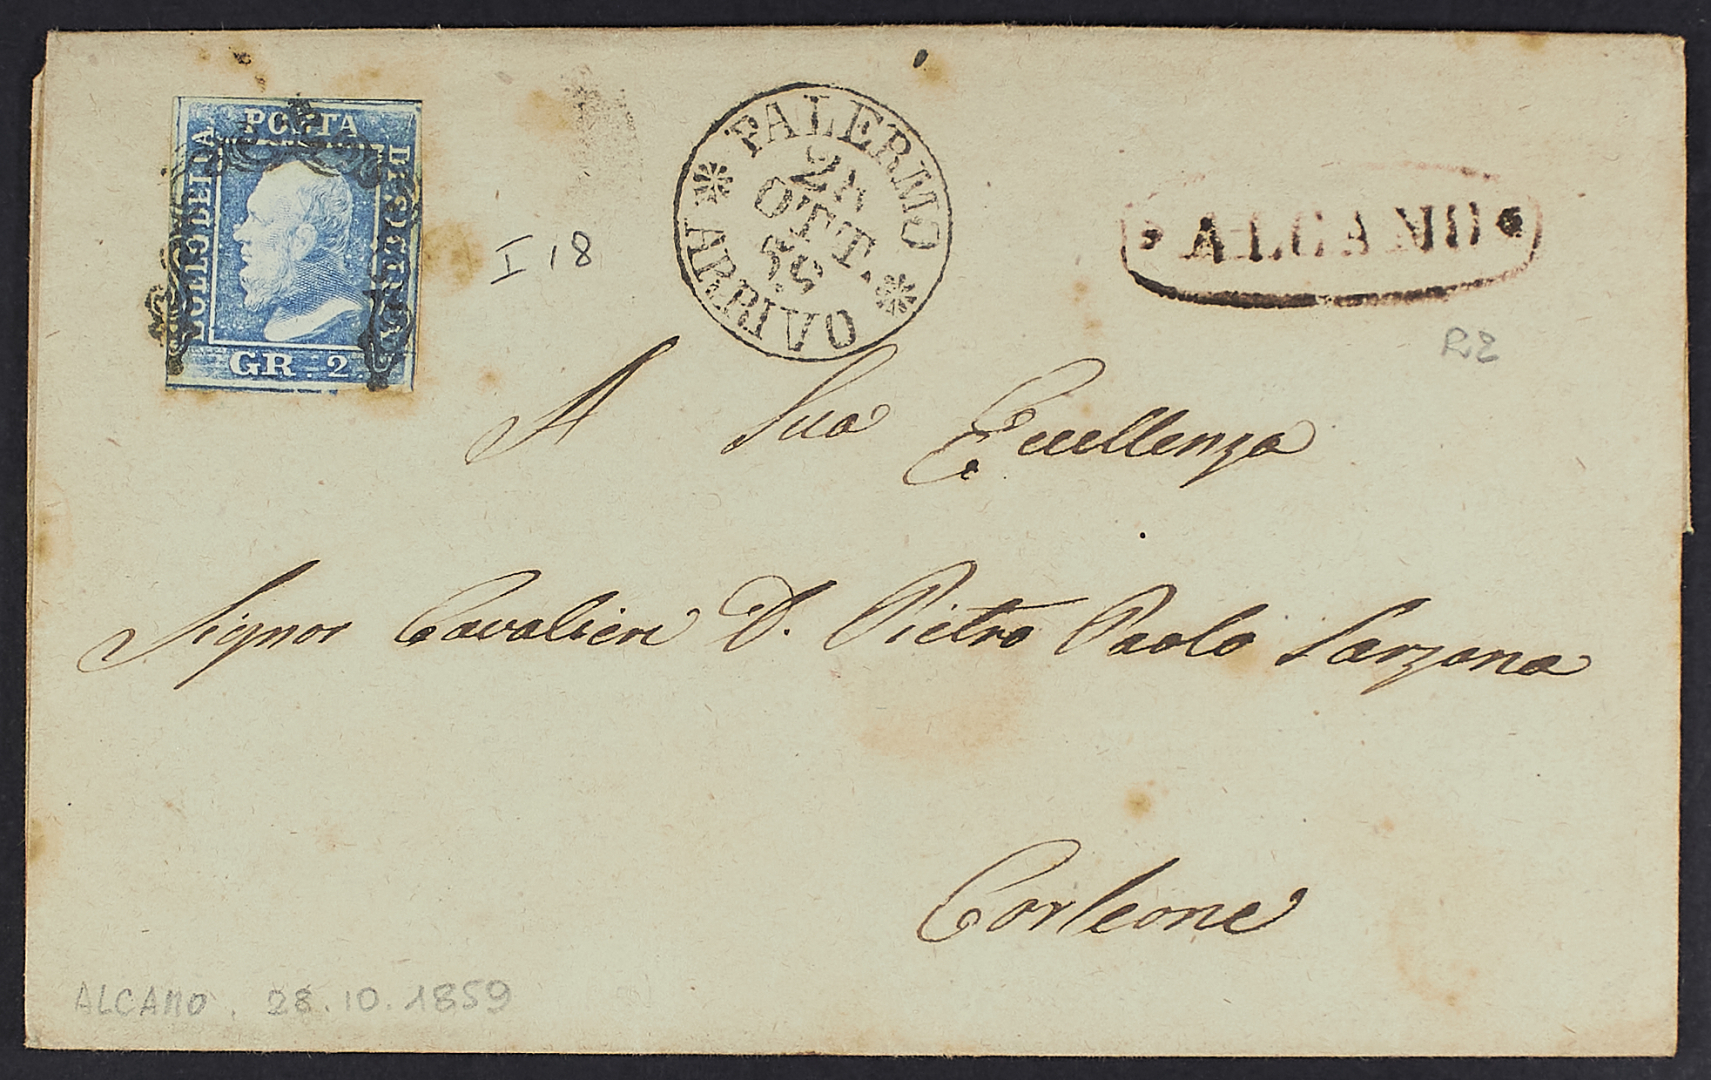 POSTA
BOLLO DELLA
DI SICILIA
GR. 2.
I 18
PALERMO
28
OTT.
59
ARRIVO
ALCAMO
RZ
A Sua Eccellenza
Signor Cavalieri D. Pietro Paolo Sarzana
Corleone
ALCAMO. 28.10.1859